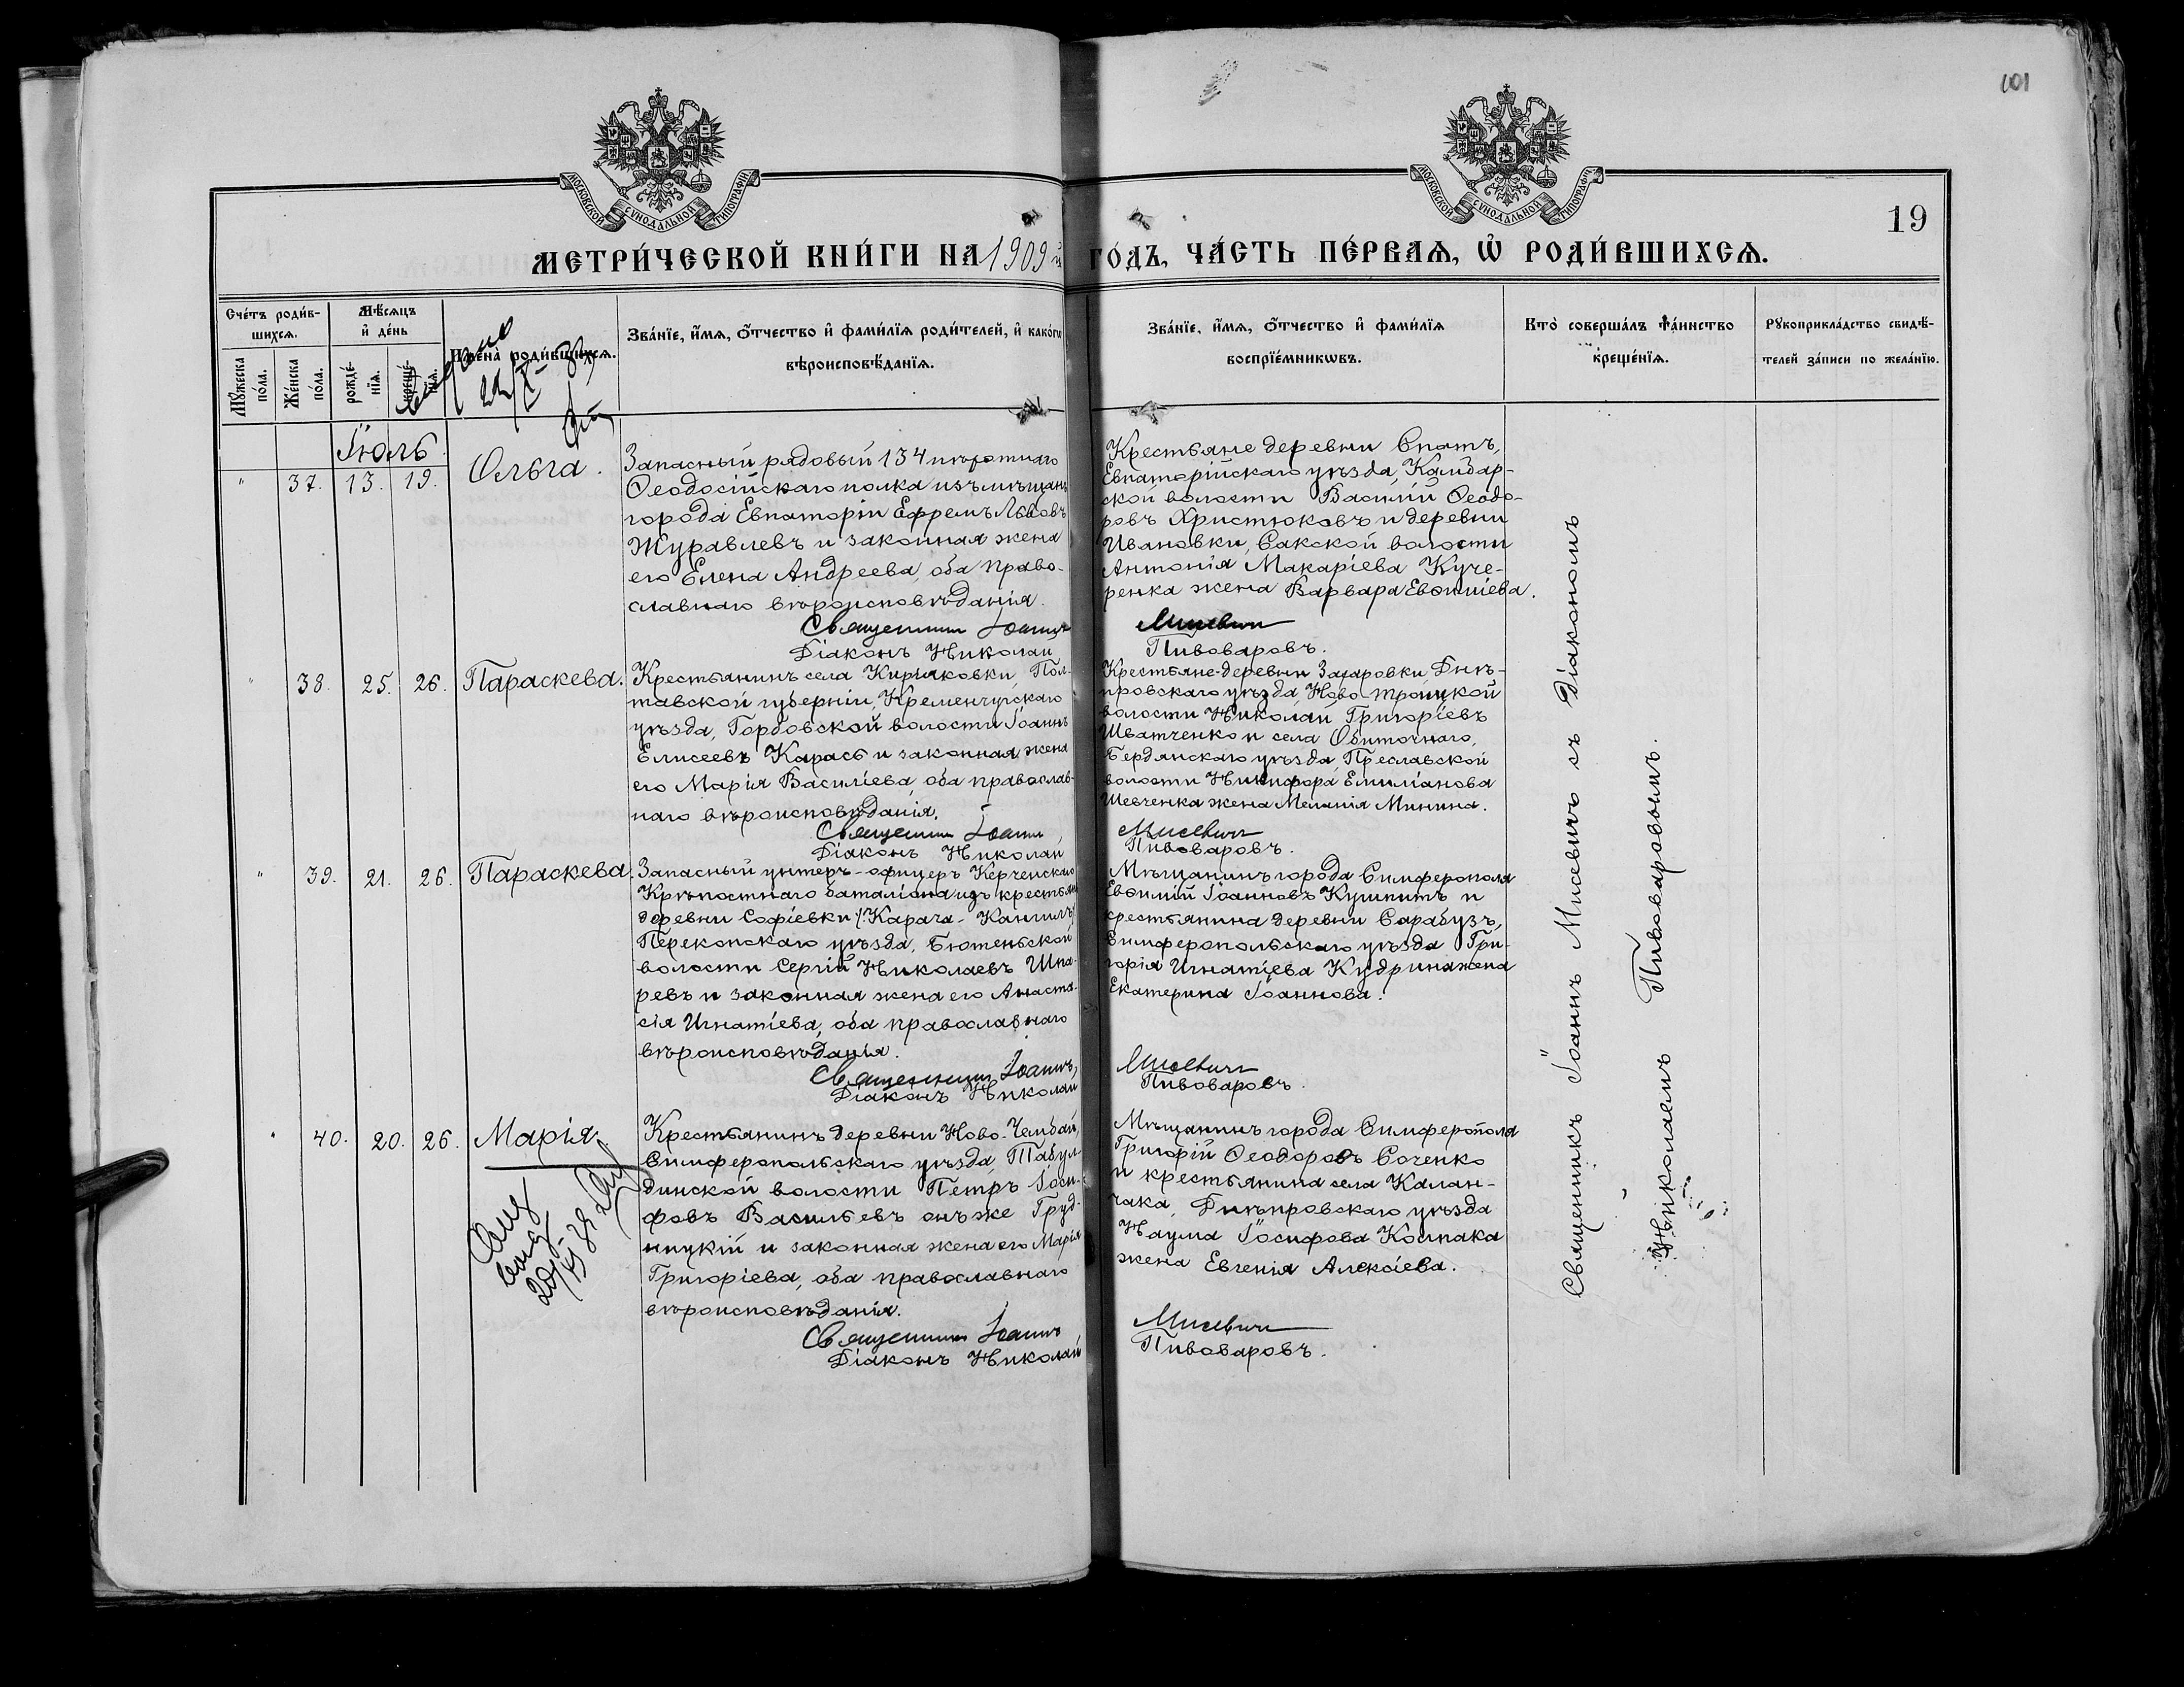 101
МОСКОВСКОЙ СѴНОДАЛЬНОЙ ТИПОГРАФІИ
МОСКОВСКОЙ СѴНОДАЛЬНОЙ ТИПОГРАФІИ
19
МЕТРИ́ЧЕСКОЙ КНИ́ГИ НА 1909 й ГО́ДЪ, ЧА́СТЬ ПЕ́РВАѦ, Ѡ҆ РОДИ́ВШИХСѦ.
Сче́тъ роди́в-
шихсѧ.
Мꙋ́жеска по́ла.
Же́нска по́ла.
Мѣ́сѧцъ и҆ де́нь
рожде́-
нїѧ.
креще́-
нїѧ.
И҆мена̀ роди́вшихсѧ.
Зва́нїе, и҆́мѧ, ѻ҆́тчество и҆ фами́лїѧ роди́телей, и҆ како́гѡ
вѣроисповѣ́данїѧ.
Зва́нїе, и҆́мѧ, ѻ҆́тчество и҆ фами́лїѧ
воспрїе́мникѡвъ.
Кто̀ соверша́лъ та́инство
креще́нїѧ.
Рꙋкоприкла́дство свидѣ́-
телей за́писи по жела́нїю.
Іюль
" 37. 13. 19. Ольга.
Запасный рядовый 134 пѣхотнаго
Ѳеодосійскаго полка изъ мѣщанъ
города Евпаторіи Ефремъ Львовъ
Журавлевъ и законная жена
его Елена Андреева, оба право-
славнаго вѣроисповѣданія.
Священникъ Іоаннъ
Діаконъ Николай
Крестьяне деревни Спатъ,
Евпаторійскаго уѣзда, Камбар-
ской волости Василій Ѳеодо-
ровъ Христюковъ и деревни
Ивановки, Сакской волости
Антонія Макаріева Куче-
ренка жена Варвара Евѳиміева.
Мисевичъ
Пивоваровъ.
" 38. 25. 26. Параскева.
Крестьянинъ села Кириаковки, Пол-
тавской губерніи, Кременчугскаго
уѣзда, Горбовской волости Іоаннъ
Елисеевъ Карась и законная жена
его Марія Василіева, оба православ-
наго вѣроисповѣданія.
Священникъ Іоаннъ
Діаконъ Николай
Крестьяне деревни Захаровки, Днѣ-
провскаго уѣзда, Ново-Троицкой
волости Николай Григоріевъ
Шватченко и села Обиточнаго,
Бердянскаго уѣзда, Преславской
волости Никифора Емиліанова
Шевченка жена Меланія Минина.
Мисевичъ
Пивоваровъ.
" 39. 21. 26. Параскева.
Запасный унтеръ-офицеръ Керченскаго
Крѣпостнаго баталіона изъ крестьянъ
деревни Софіевки /Карача-Кангилъ/
Перекопскаго уѣзда, Бютеньской
волости Сергій Николаевъ Шпа-
ревъ и законная жена его Анаста-
сія Игнатіева, оба православнаго
вѣроисповѣданія.
Священникъ Іоаннъ,
Діаконъ Николай
Мѣщанинъ города Симферополя
Евѳимій Іоанновъ Кушнитъ и
крестьянина деревни Сарабузъ,
Симферопольскаго уѣзда Гри-
горія Игнатіева Кудрина жена
Екатерина Іоаннова.
Мисевичъ
Пивоваровъ.
" 40. 20. 26. Марія
Крестьянинъ деревни Ново-Чембай,
Симферопольскаго уѣзда, Табул-
динской волости Петръ Іоси-
фовъ Васильевъ онъ же Груд-
ницкій и законная жена его Марія
Григоріева, оба православнаго
вѣроисповѣданія.
Священникъ Іоаннъ
Діаконъ Николай
Мѣщанинъ города Симферополя
Григорій Ѳеодоровъ Соченко
и крестьянина села Калан-
чака, Днѣпровскаго уѣзда
Наума Іосифова Коспака
жена Евгенія Алексіева.
Мисевичъ
Пивоваровъ.
Священникъ Іоаннъ Мисевичъ съ Діакономъ
Николаемъ Пивоваровымъ.